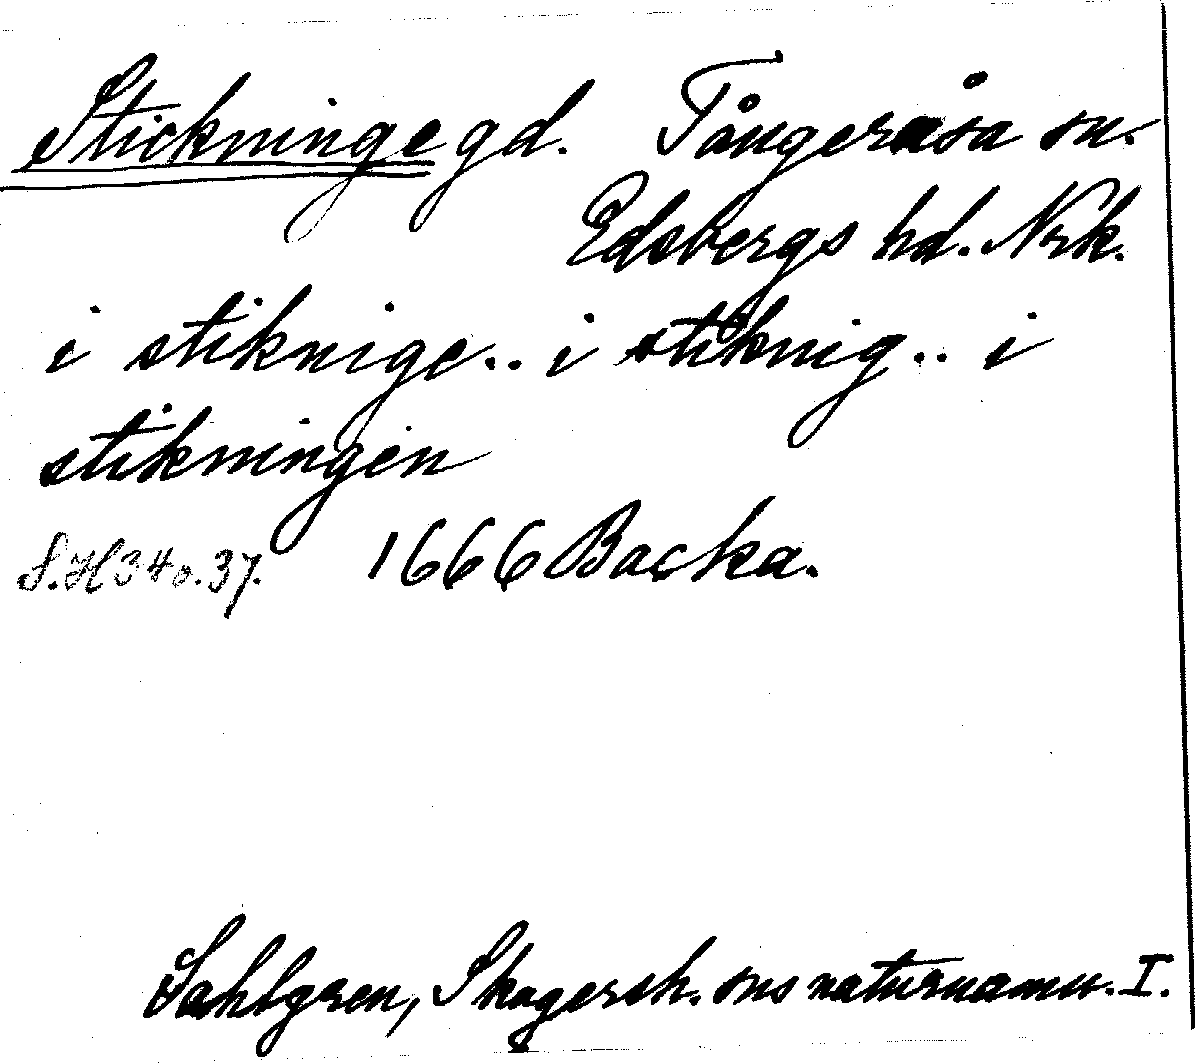 Stickninge gd. Tångeråsa sn.
Edsbergs hd. Nrk.
i stiknige.. i stiknig.. i
stikningen
S.H 34 o. 37. 1666 Backa.
Sahlgren, Skagersh. sns naturnamn. I.